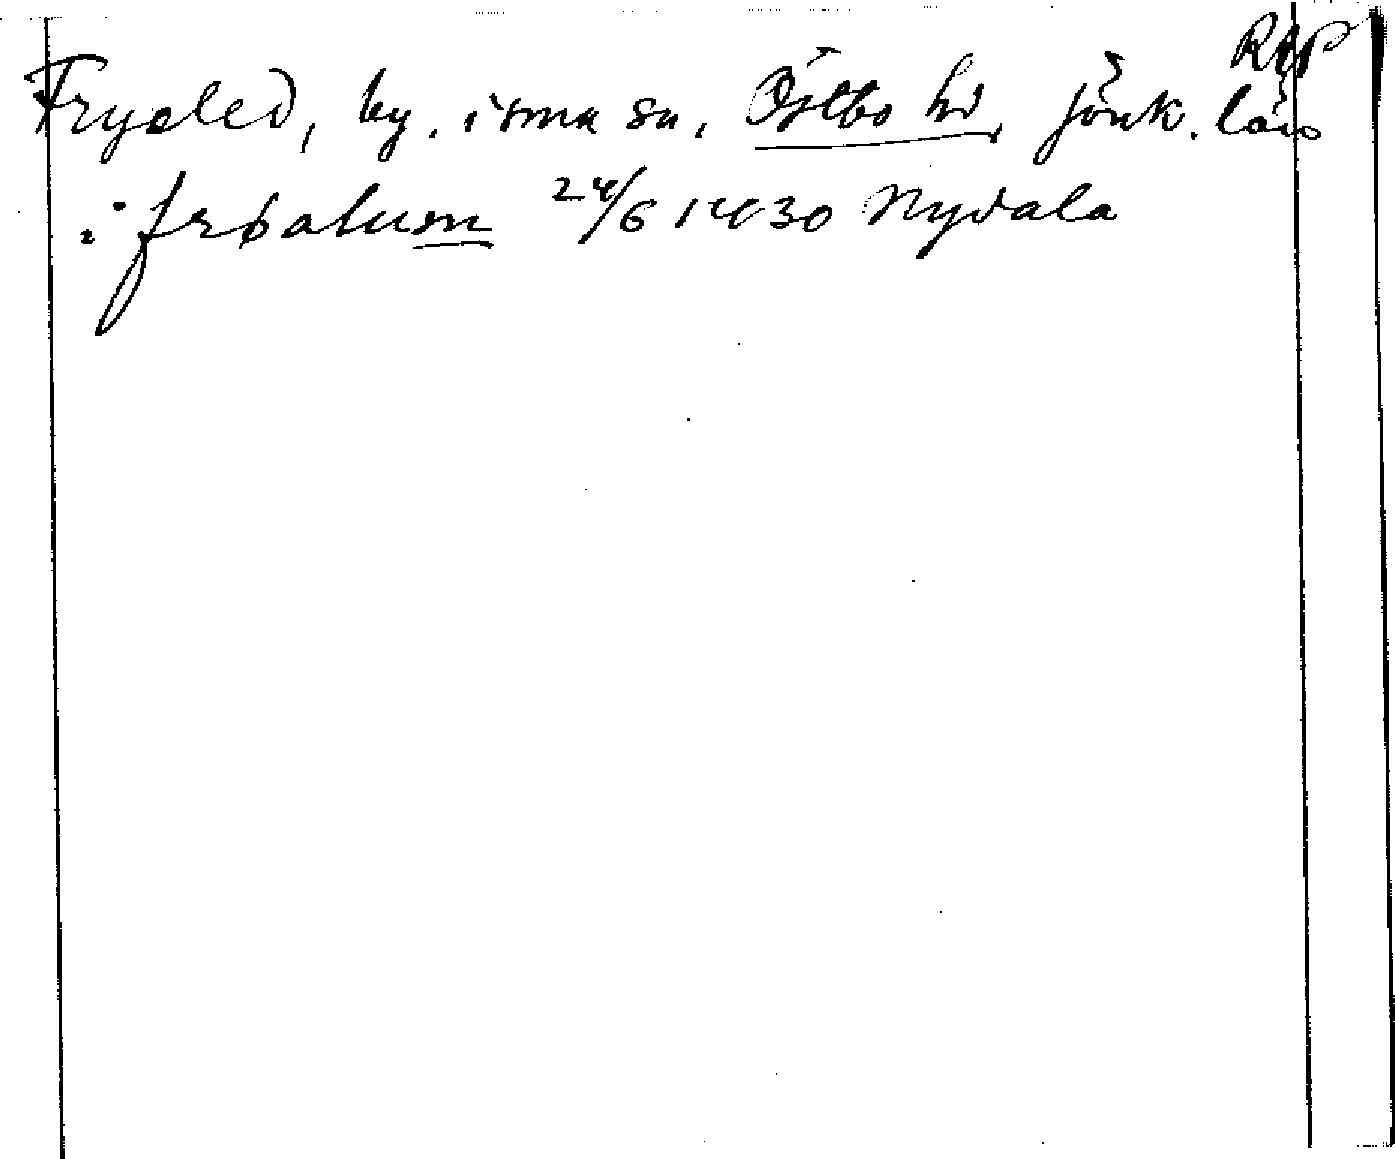 RAP
Fryeled, by. i sma sn, Östbo hd, Jönk. län
i frøalum 24/6 1430 Nydala